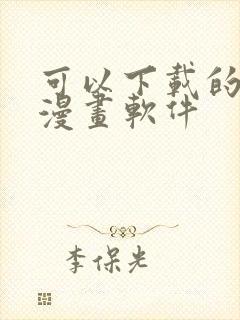 可以下載的
漫畫軟件
李保光